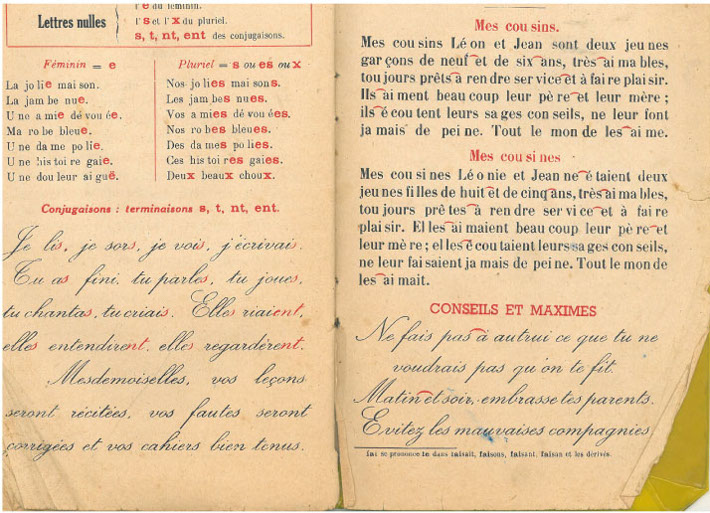 l'e du féminin.
Lettres nulles
l's et l'x du pluriel.
s, t, nt, ent des conjugaisons.
Féminin = e
La jo lie mai son.
La jam be nue.
U ne a mie dé vou ée.
Ma ro be bleue.
U ne da me po lie.
U ne his toi re gaie.
U ne dou leur ai guë.
Pluriel = s ou es ou x
Nos jo lies mai sons.
Les jam bes nues.
Vos a mies dé vou ées.
Nos ro bes bleues.
Des da mes po lies.
Ces his toi res gaies.
Deux beaux choux.
Conjugaisons : terminaisons s, t, nt, ent.
Je lis, je sors, je vois, j'écrivais.
Tu as fini, tu parles, tu joues,
tu chantas, tu criais. Elles riaient,
elles entendirent, elles regardèrent.
Mesdemoiselles, vos leçons
seront récitées, vos fautes seront
corrigées et vos cahiers bien tenus.
Mes cou sins.
Mes cou sins Lé on et Jean sont deux jeu nes
gar çons de neuf et de six ans, très ai ma bles,
tou jours prêts à ren dre ser vice et à fai re plai sir.
Ils ai ment beau coup leur pè re et leur mère ;
ils é cou tent leurs sa ges con seils, ne leur font
ja mais de pei ne. Tout le mon de les ai me.
Mes cou si nes
Mes cou si nes Lé o nie et Jean ne é taient deux
jeu nes fil les de huit et de cinq ans, très ai ma bles,
tou jours prê tes à ren dre ser vi ce et à fai re
plai sir. El les ai maient beau coup leur pè re et
leur mè re ; el les é cou taient leurs sa ges con seils,
ne leur fai saient ja mais de pei ne. Tout le mon de
les ai mait.
CONSEILS ET MAXIMES
Ne fais pas à autrui ce que tu ne
voudrais pas qu'on te fît.
Matin et soir, embrasse tes parents.
Evitez les mauvaises compagnies
fai se prononce fe dans faisait, faisons, faisant, faison et les dérivés.